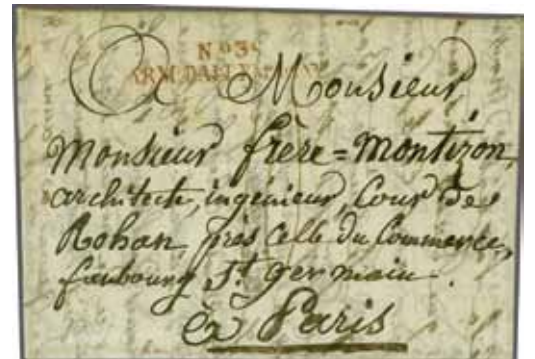 No 39
ARM. D'ALLEMAGNE
A Monsieur
Monsieur frère = Montizon,
architecte, ingénieur, Cour de
Rohan, près Celle du Commerce,
faubourg St germain.
à Paris